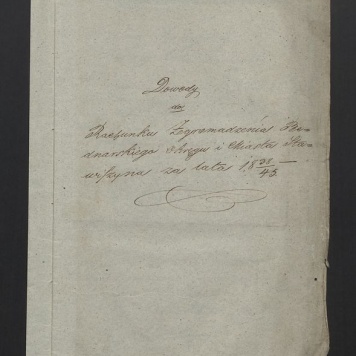 Dowody
do
Rachunku Zgromadzenia Bed-
narskiego Okręgu i Miasta Sta-
wiszyna za lata 18 38/45 —